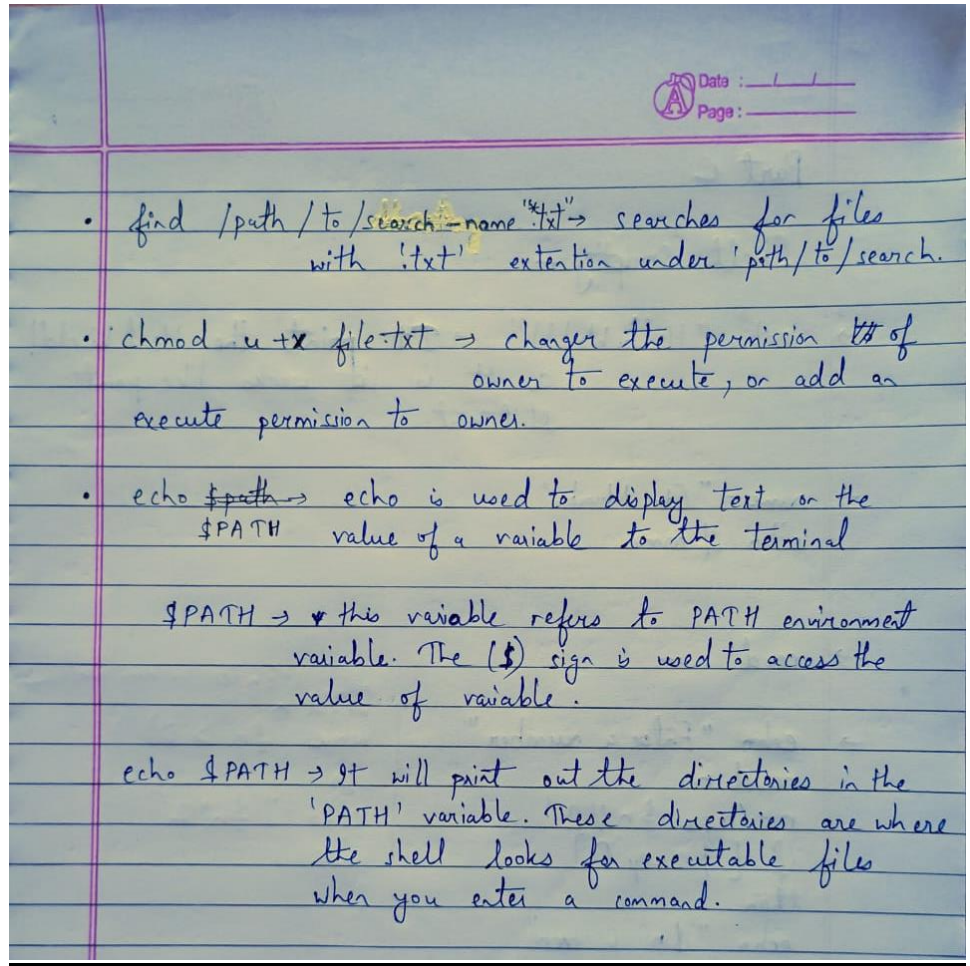 Date : __/__/__
Page :
• find /path/to/search -name "*.txt" → searches for files
with '.txt' extention under 'path/to/search.
• chmod u+x file.txt → changer the permission of
owner to execute, or add an
execute permission to owner.
• echo $path → echo is used to display text or the
$PATH value of a variable to the terminal
$PATH → this variable refers to PATH environment
variable. The ($) sign is used to access the
value of variable.
echo $PATH → It will print out the directories in the
'PATH' variable. These directories are where
the shell looks for execuitable files
when you enter a command.